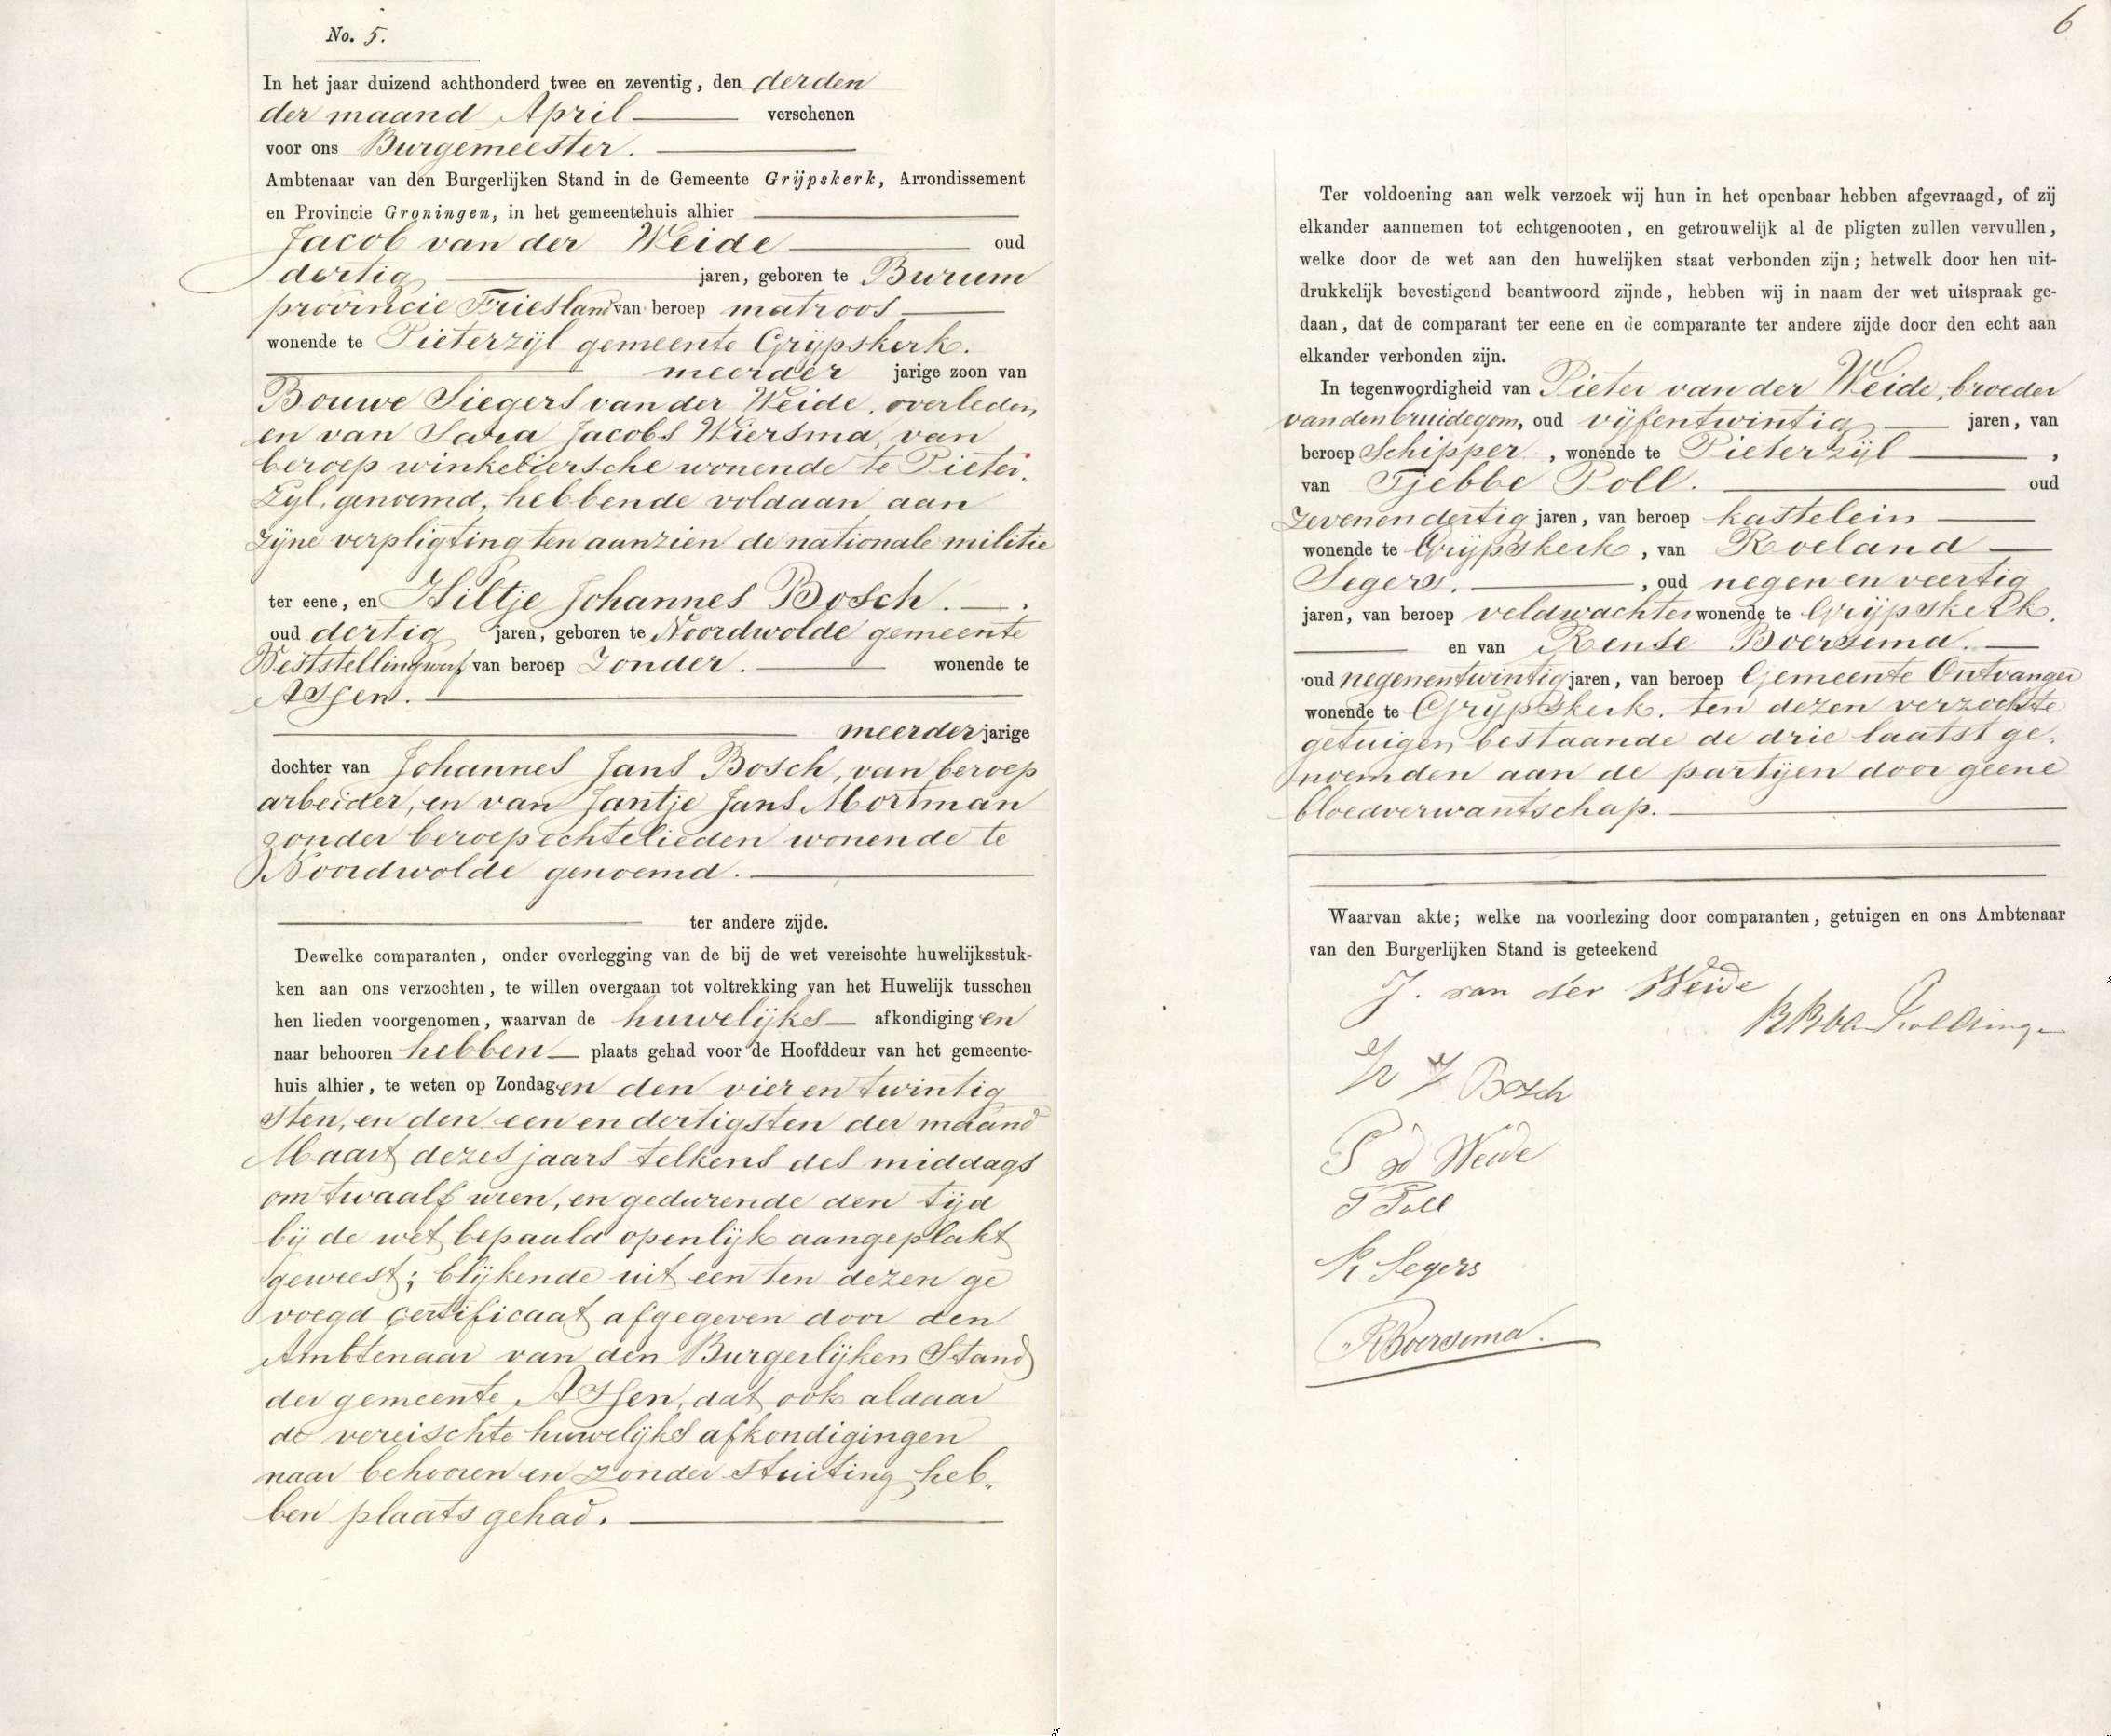 No. 5.
In het jaar duizend achthonderd twee en zeventig, den derden
der maand April verschenen
voor ons Burgemeester.
Ambtenaar van den Burgerlijken Stand in de Gemeente Grijpskerk, Arrondissement
en Provincie Groningen, in het gemeentehuis alhier
Jacob van der Weide oud
dertig jaren, geboren te Burum
provincie Friesland van beroep matroos
wonende te Pieterzijl gemeente Grijpskerk.
meerder jarige zoon van
Bouwe Siegers van der Weide, overleden,
en van Sara Jacobs Wiersma, van
beroep winkeliersche wonende te Pieter-
Zyl, genoemd, hebbende voldaan aan
zijne verpligting ten aanzien de nationale militie
ter eene, en Hiltje Johannes Bosch.
oud dertig jaren, geboren te Noordwolde gemeente
Weststellingwerf van beroep Zonder. wonende te
Assen.
meerder jarige
dochter van Johannes Jans Bosch, van beroep
arbeider, en van Jantje Jans Mortman
zonder beroep echtelieden wonende te
Noordwolde genoemd.
ter andere zijde.
Dewelke comparanten, onder overlegging van de bij de wet vereischte huwelijksstuk-
ken aan ons verzochten, te willen overgaan tot voltrekking van het Huwelijk tusschen
hen lieden voorgenomen, waarvan de huwelijks afkondiging en
naar behooren hebben plaats gehad voor de Hoofddeur van het gemeente-
huis alhier, te weten op Zondagen den vier en twintig
sten, en den een en dertigsten der maand
Maart dezes jaars telkens des middags
om twaalf uren, en gedurende den tijd
bij de wet bepaald openlijk aangeplakt
geweest; blijkende uit een ten dezen ge
voegd certificaat afgegeven door den
Ambtenaar van den Burgerlijken Stand
der gemeente Assen, dat ook aldaar
de vereischte huwelijks afkondigingen
naar behooren en zonder stuiting heb-
ben plaats gehad.
6
Ter voldoening aan welk verzoek wij hun in het openbaar hebben afgevraagd, of zij
elkander aannemen tot echtgenooten, en getrouwelijk al de pligten zullen vervullen,
welke door de wet aan den huwelijken staat verbonden zijn; hetwelk door hen uit-
drukkelijk bevestigend beantwoord zijnde, hebben wij in naam der wet uitspraak ge-
daan, dat de comparant ter eene en de comparante ter andere zijde door den echt aan
elkander verbonden zijn.
In tegenwoordigheid van Pieter van der Weide, broeder
van den bruidegom, oud vijfentwintig jaren, van
beroep Schipper, wonende te Pieterzijl,
van Tjebbe Poll. oud
zevenendertig jaren, van beroep kastelein
wonende te Grijpskerk, van Roeland
Segers., oud negen en veertig
jaren, van beroep veldwachter wonende te Grijpskerk,
en van Rense Boersema.
oud negenentwintig jaren, van beroep Gemeente Ontvanger
wonende te Grijpskerk. ten dezen verzochte
getuigen, bestaande de drie laatst ge-
noemden aan de partijen door geene
bloedverwantschap.
Waarvan akte; welke na voorlezing door comparanten, getuigen en ons Ambtenaar
van den Burgerlijken Stand is geteekend
J. van der Weide
H J Bosch
P vd Weide
T Poll
R Segers
RBoersema.